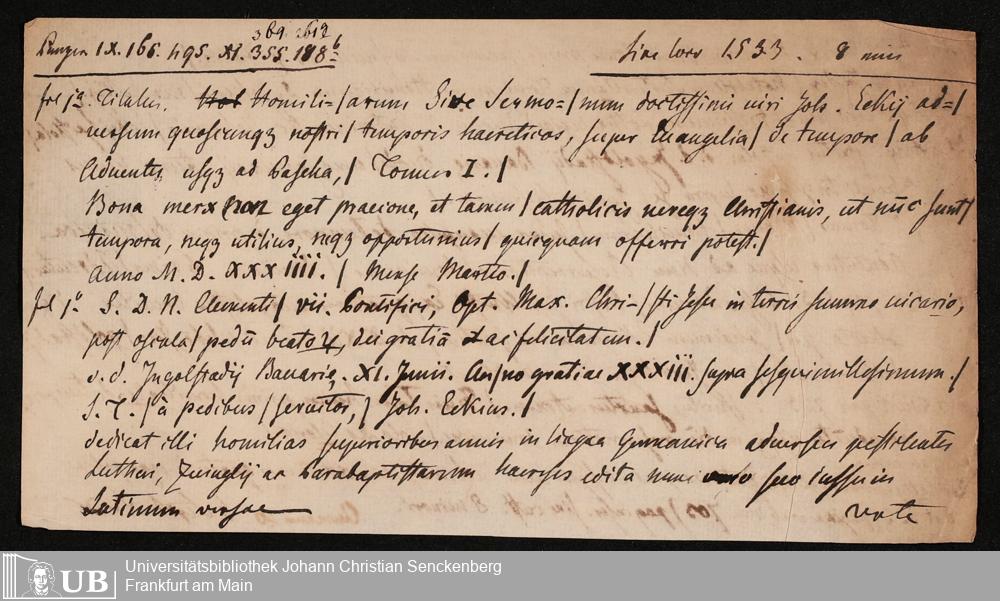 369. 2612
Panzer IX. 166. 495. XI. 355. 188b
Sine loco 1533. 8 min
fol 1a. Titulus. Homili=/arum Sive Sermo=/num doctissimi viri Joh. Eckij ad=/
versum quoscunqz nostri/ temporis haereticos, super Euangelia/ de tempore/ ab
Aduentu usqz ad Pascha,/ Tomus I./
Bona merx non eget praecione, et tamen/ catholicis uereqz Christianis, ut nūc sunt/
tempora, neqz utilius, neqz opportunius/ quicquam offerri potest./
Anno M. D. XXXIIII./ Mense Martio./
fol 1b. S. D. N. Clementi/ vii. Pontifici, Opt. Max. Chri-/sti Jesu in terris summo uicario,
post oscula/ pedū beatoꝝ, dei gratiā ac felicitatem./
d. d. Ingolstadij Bauarię. XI. Junii. An/no gratiae XXXiii. supra sesquimillesimum./
S. T./ à pedibus/ seruitor,/ Joh. Eckius./
dedicat illi homilias superioribus annis in lingua Germanica aduersus pestilentes
Lutheri, Zuinglij ac Catabaptistarum haereses edita nunc suo iussu in
Latinum versae
verte
UB
Universitätsbibliothek Johann Christian Senckenberg
Frankfurt am Main